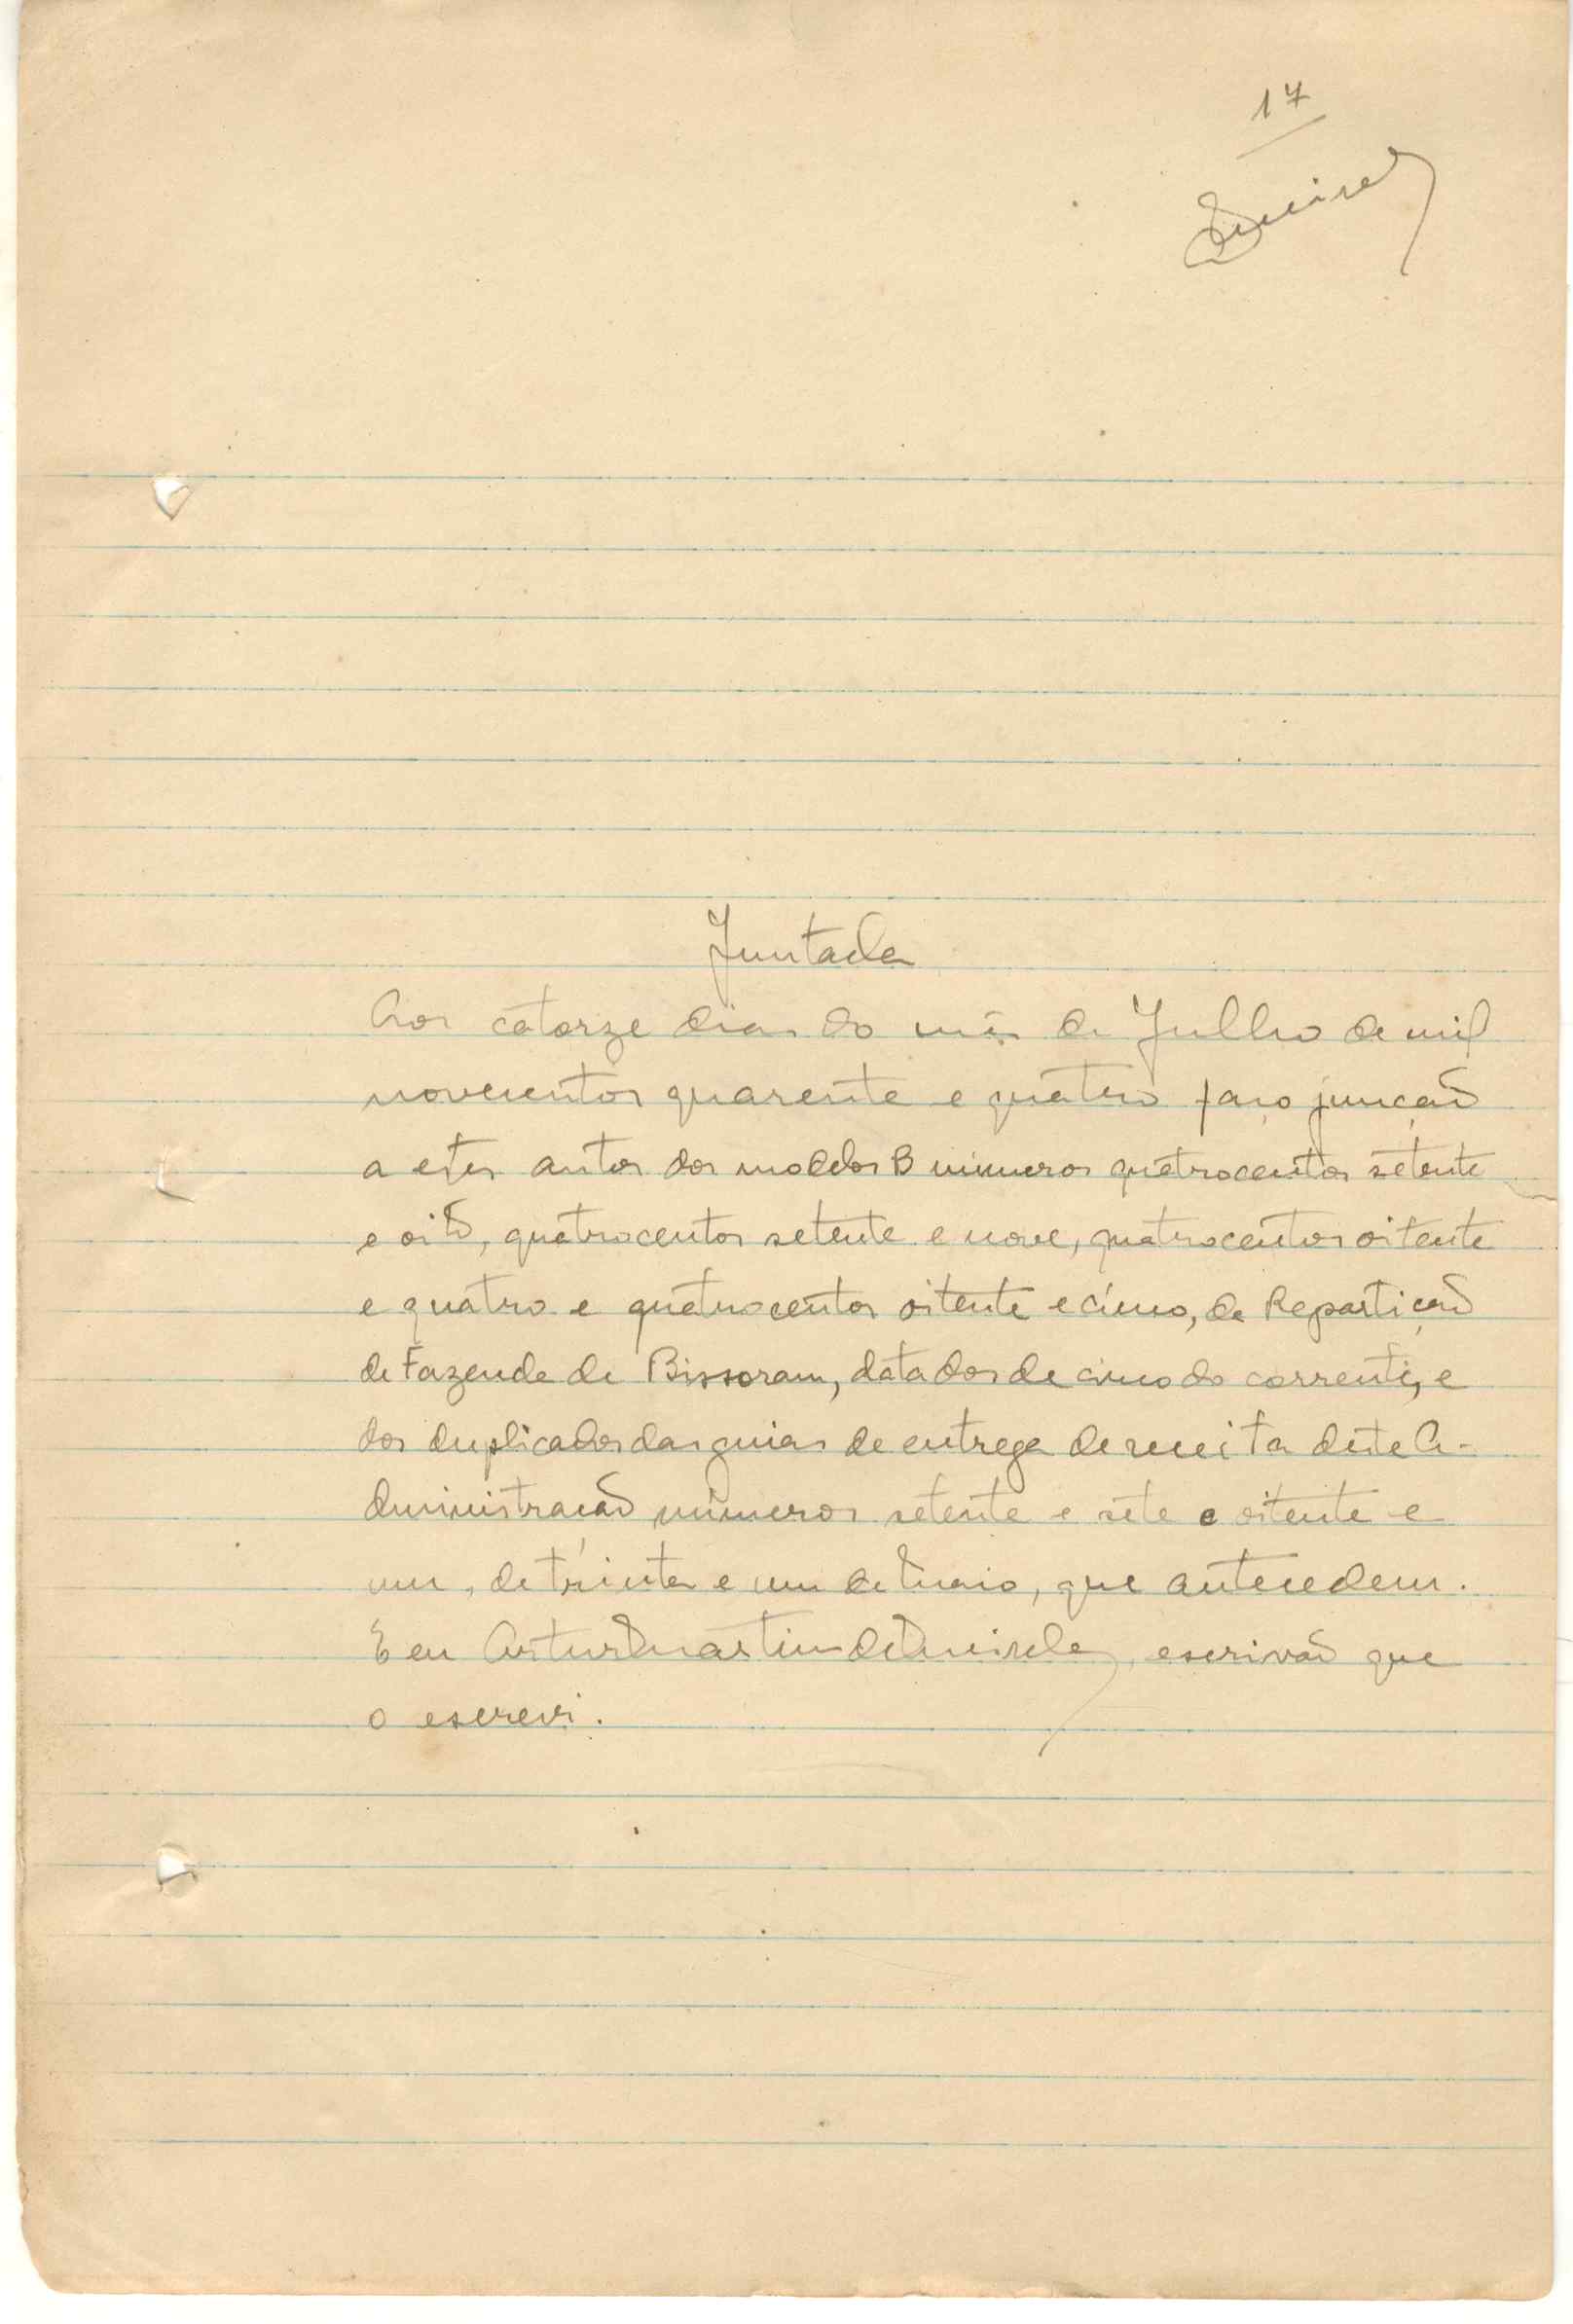 17
Juntada
Aos catorze dias do mês de Julho de mil
novecentos quarenta e quatro faço junção
a estes autos dos modelos B números quatrocentos setenta
e oito, quatrocentos setenta e nove, quatrocentos oitenta
e quatro e quatrocentos oitenta e cinco, da Repartição
de Fazenda de Bissoram, datados de cinco do corrente, e
dos duplicados das guias de entrega de receita desta A-
dministração números setenta e sete e oitenta e
um, de trinta e um de Maio, que antecedem.
E eu Artur Martins de, escrivão que
o escrevi.